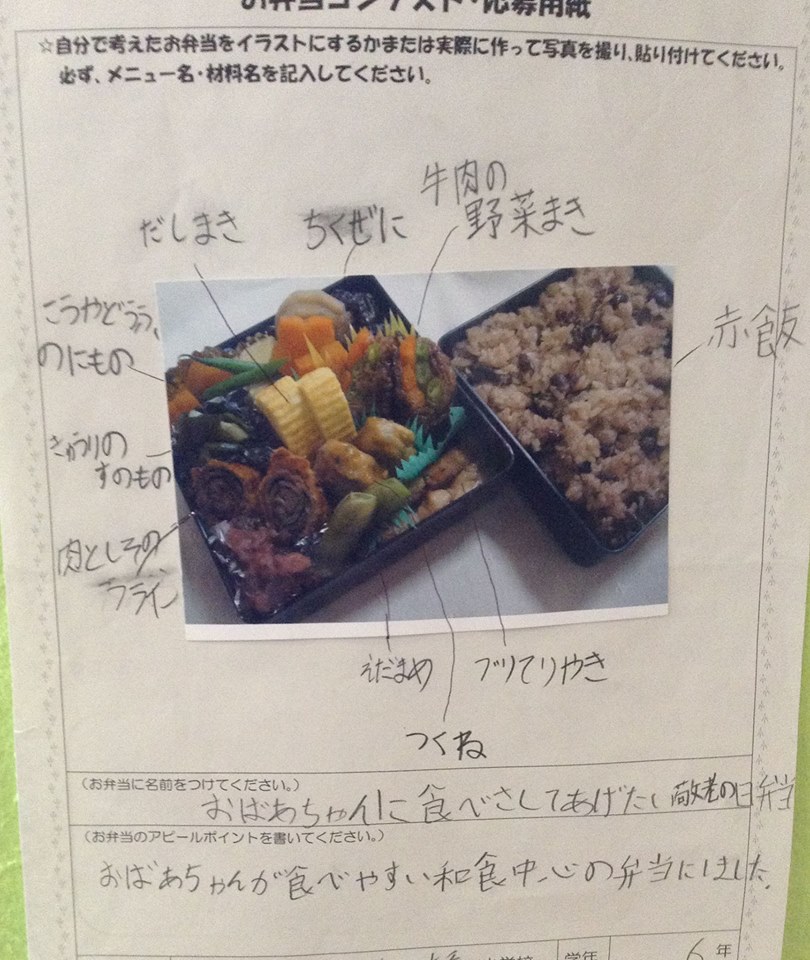 お弁当コンテスト・応募用紙
☆自分で考えたお弁当をイラストにするかまたは実際に作って写真を撮り、貼り付けてください。
必ず、メニュー名・材料名を記入してください。
牛肉の
野菜まき
だしまき
ちくぜに
こうやどうふ
のにもの
赤飯
きゅうりの
すのもの
肉としその
フライ
えだまめ
ブリてりやき
つくね
(お弁当に名前をつけてください。)
おばあちゃんに食べさしてあげたい敬老の日弁当
(お弁当のアピールポイントを書いてください。)
おばあちゃんが食べやすい和食中心の弁当にしました。
小学校 学年 6年